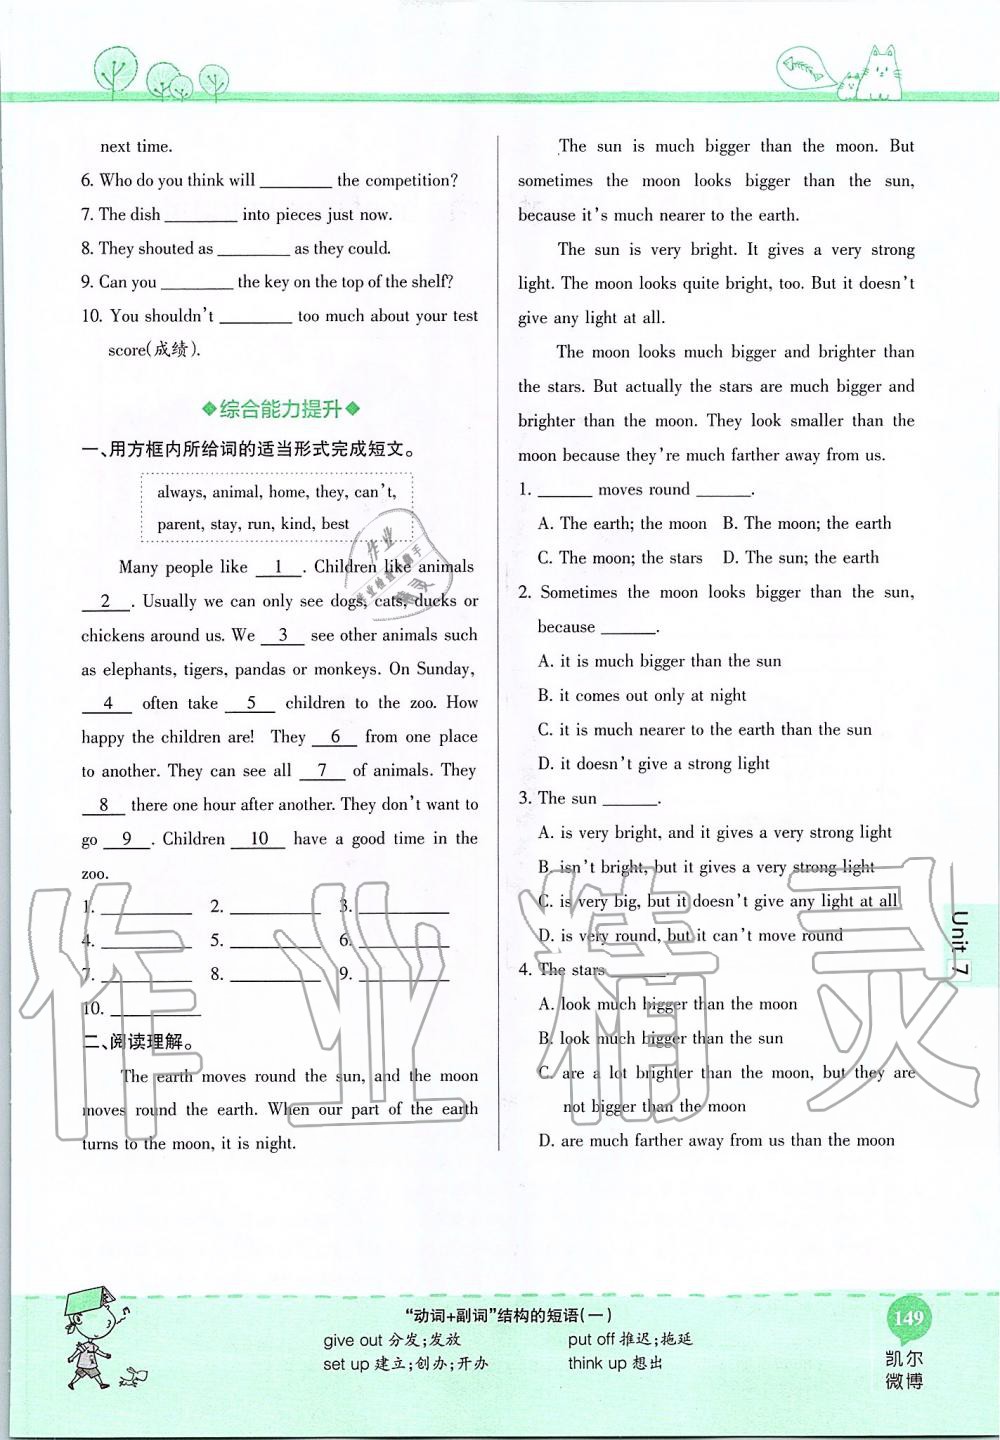 next time.
6. Who do you think will ________ the competition?
7. The dish ________ into pieces just now.
8. They shouted as ________ as they could.
9. Can you ________ the key on the top of the shelf?
10. You shouldn't ________ too much about your test
score(成绩).
综合能力提升
一、用方框内所给词的适当形式完成短文。
always, animal, home, they, can't,
parent, stay, run, kind, best
Many people like 1 . Children like animals
2 . Usually we can only see dogs, cats, ducks or
chickens around us. We 3 see other animals such
as elephants, tigers, pandas or monkeys. On Sunday,
4 often take 5 children to the zoo. How
happy the children are! They 6 from one place
to another. They can see all 7 of animals. They
8 there one hour after another. They don't want to
go 9 . Children 10 have a good time in the
zoo.
1. ________ 2. ________ 3. ________
4. ________ 5. ________ 6. ________
7. ________ 8. ________ 9. ________
10. ________
二、阅读理解。
The earth moves round the sun, and the moon
moves round the earth. When our part of the earth
turns to the moon, it is night.
The sun is much bigger than the moon. But
sometimes the moon looks bigger than the sun,
because it's much nearer to the earth.
The sun is very bright. It gives a very strong
light. The moon looks quite bright, too. But it doesn't
give any light at all.
The moon looks much bigger and brighter than
the stars. But actually the stars are much bigger and
brighter than the moon. They look smaller than the
moon because they're much farther away from us.
1. ______ moves round ______.
A. The earth; the moon B. The moon; the earth
C. The moon; the stars D. The sun; the earth
2. Sometimes the moon looks bigger than the sun,
because ______.
A. it is much bigger than the sun
B. it comes out only at night
C. it is much nearer to the earth than the sun
D. it doesn't give a strong light
3. The sun ______.
A. is very bright, and it gives a very strong light
B. isn't bright, but it gives a very strong light
C. is very big, but it doesn't give any light at all
D. is very round, but it can't move round
4. The stars ______.
A. look much bigger than the moon
B. look much bigger than the sun
C. are a lot brighter than the moon, but they are
not bigger than the moon
D. are much farther away from us than the moon
Unit 7
作业精灵
“动词+副词”结构的短语(一)
give out 分发;发放 put off 推迟;拖延
set up 建立;创办;开办 think up 想出
149
凯尔
微博